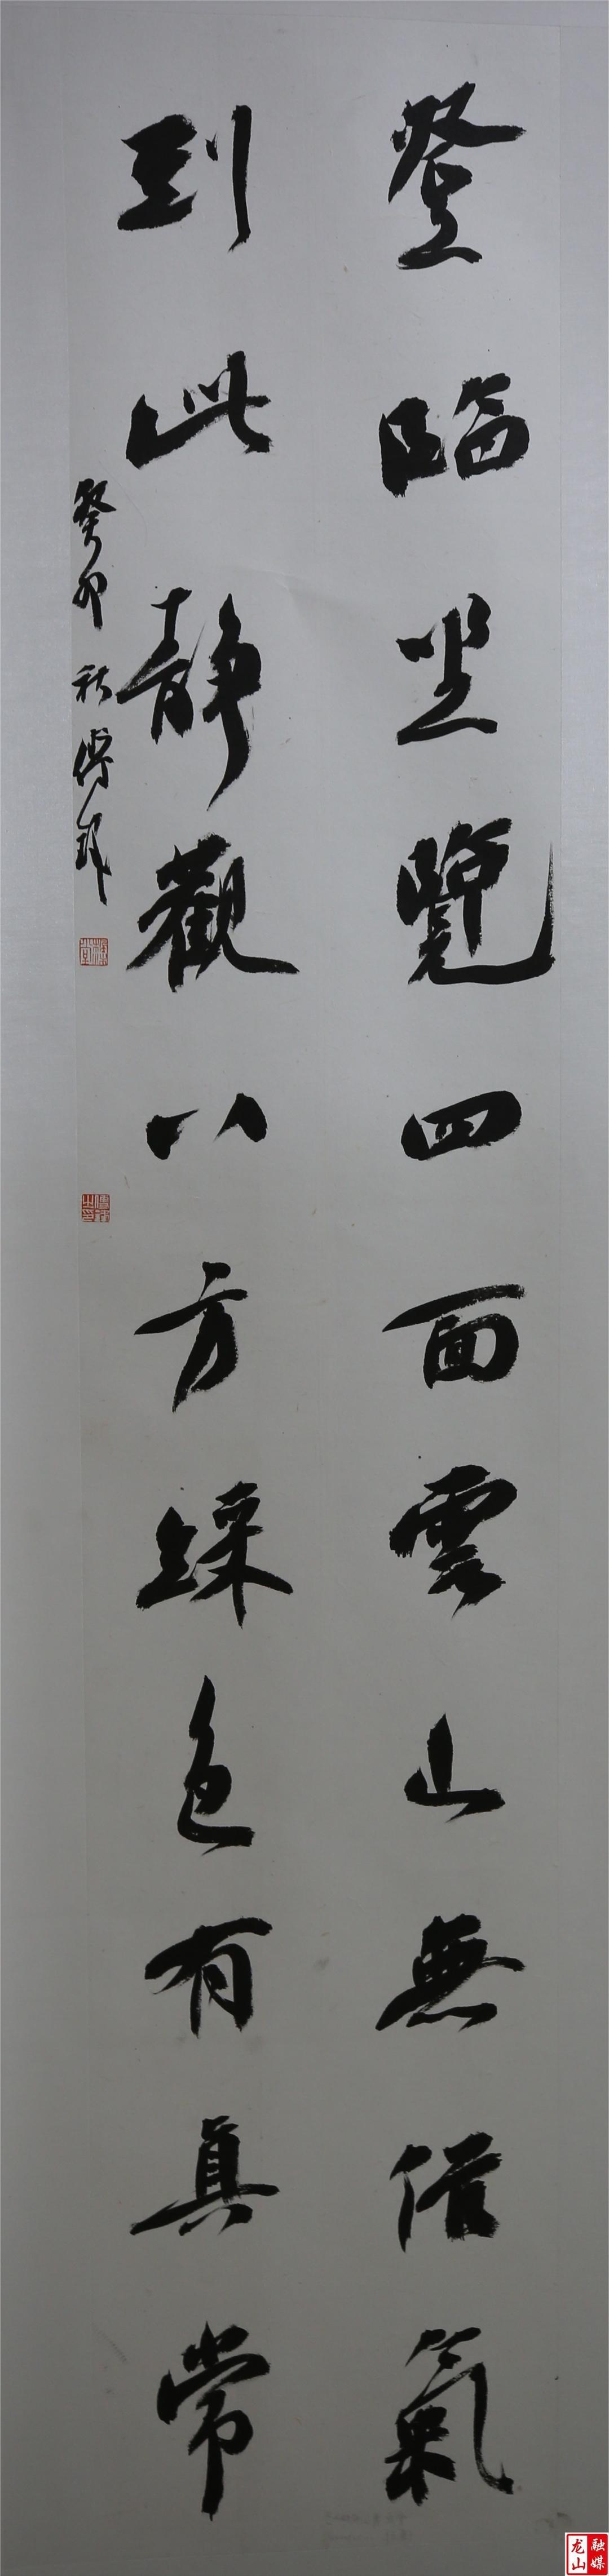 登臨坐覽四面雲山無俗氣
到此靜觀八方綵色有真常
癸卯秋傅
龙山
融媒